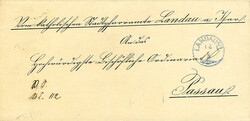 Von Katholischen Stadtpfarramte Landau a. Isar
An das
Hochwürdigste Bischöfliche Ordinariat
Passau
LANDAU